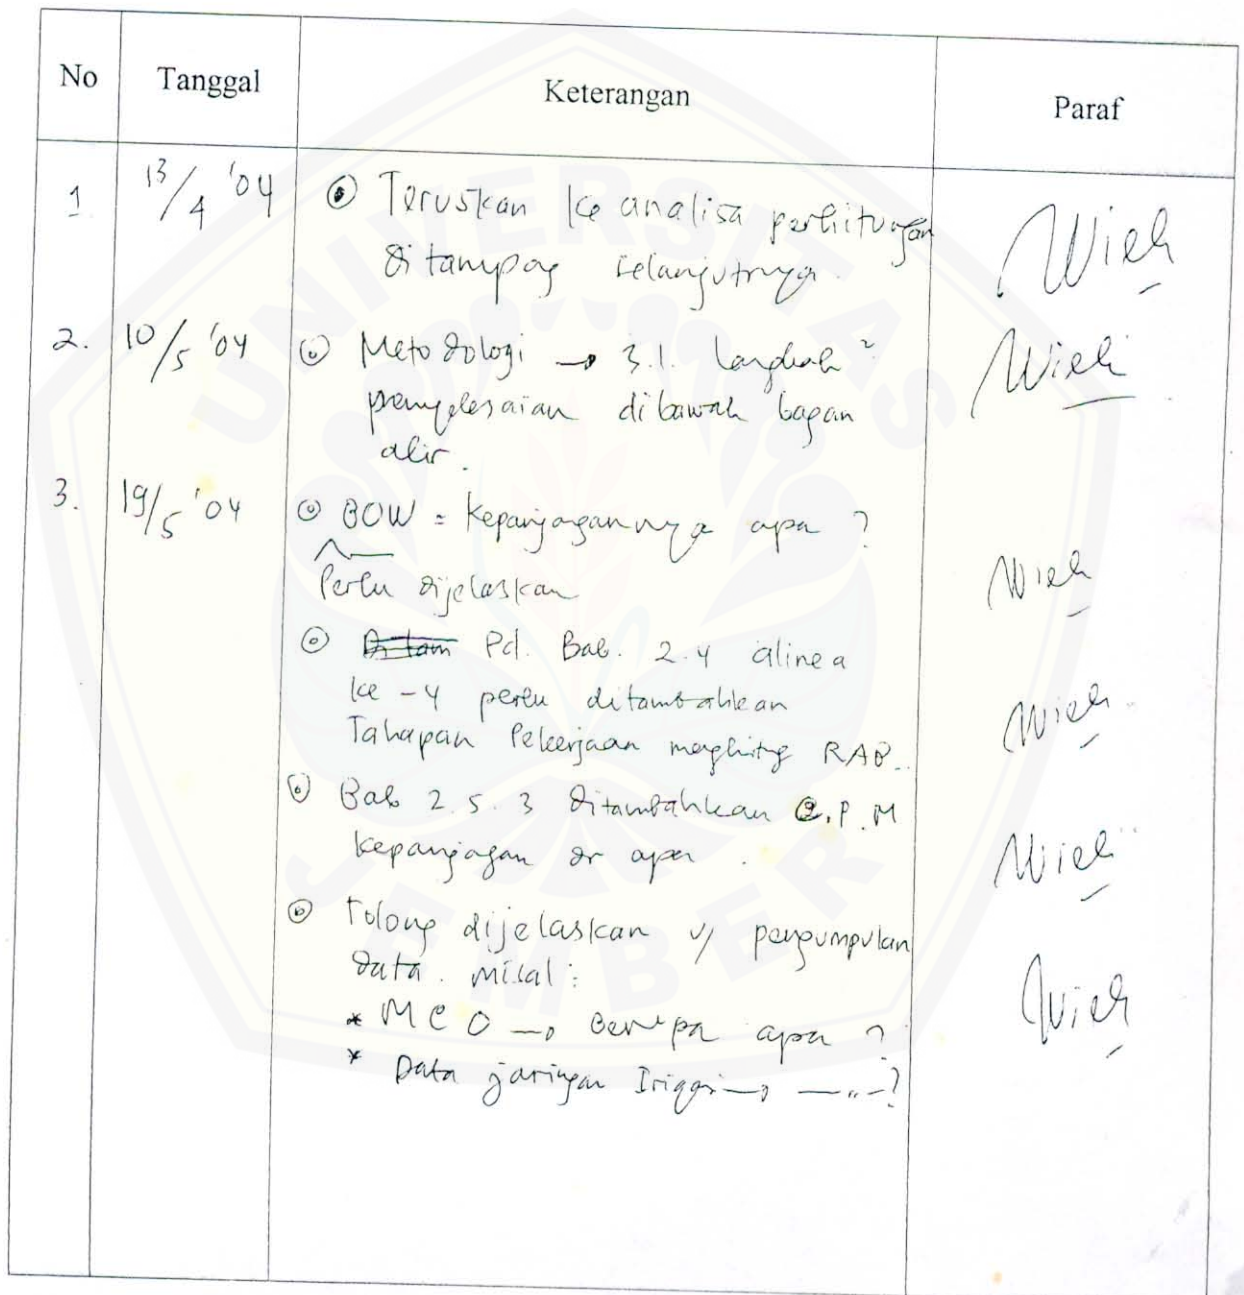 No Tanggal Keterangan Paraf
1. 13/4 '04 Teruskan ke analisa perhitungan
ditampog selanjutnya.
2. 10/5 '04 Metodologi → 3.1. langkah²
penyelesaian dibawah bagan
alir.
3. 19/5 '04 BOW = Kepanjagannya apa ?
Perlu dijelaskan
Pd. Bab. 2.4 alinea
ke-4 perlu ditambahkan
Tahapan Pekerjaan menghitg RAB.
Bab 2.5.3 ditambahkan C.P.M
kepanjagan dr apa.
Tolong dijelaskan u/ pengumpulan
data. misal:
* MCO → Berupa apa ?
* Data jaringan Irigasi → —〃—?
UNIVERSITAS
JEMBER